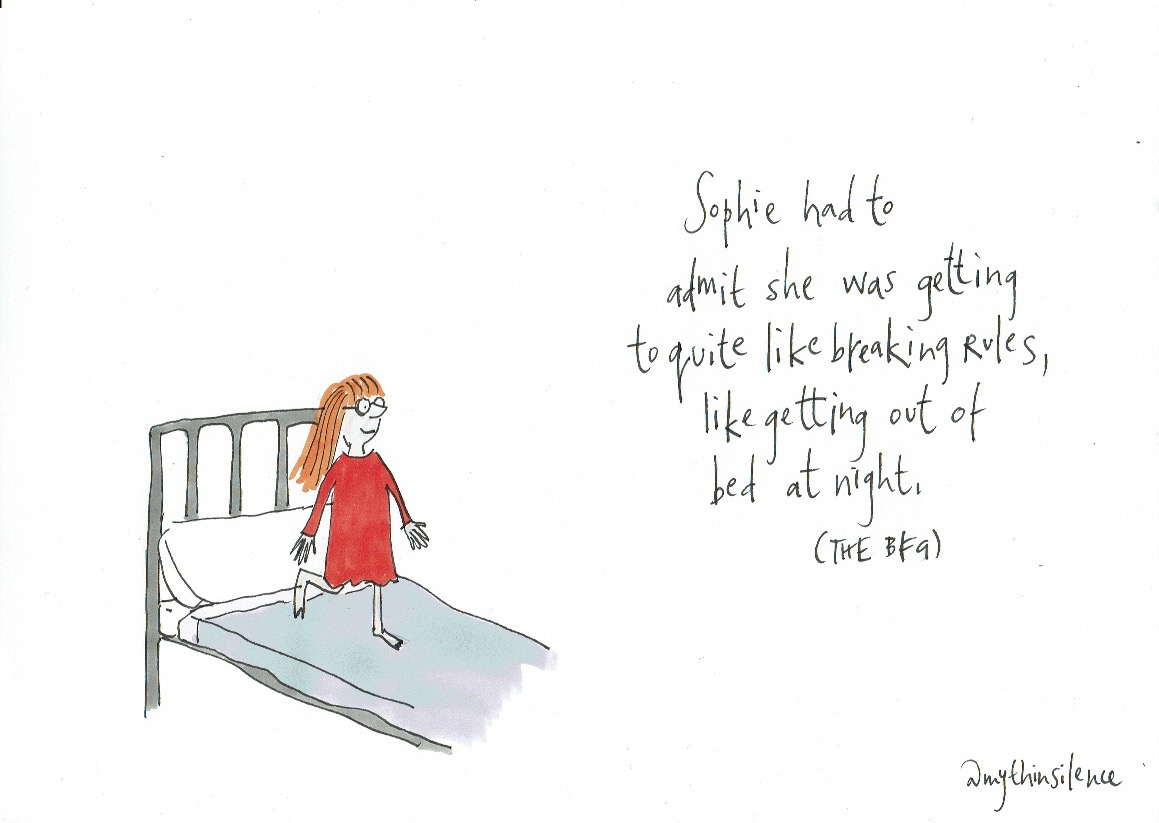 Sophie had to
admit she was getting
to quite like breaking rules,
like getting out of
bed at night.
(THE BFG)
@mythinsilence